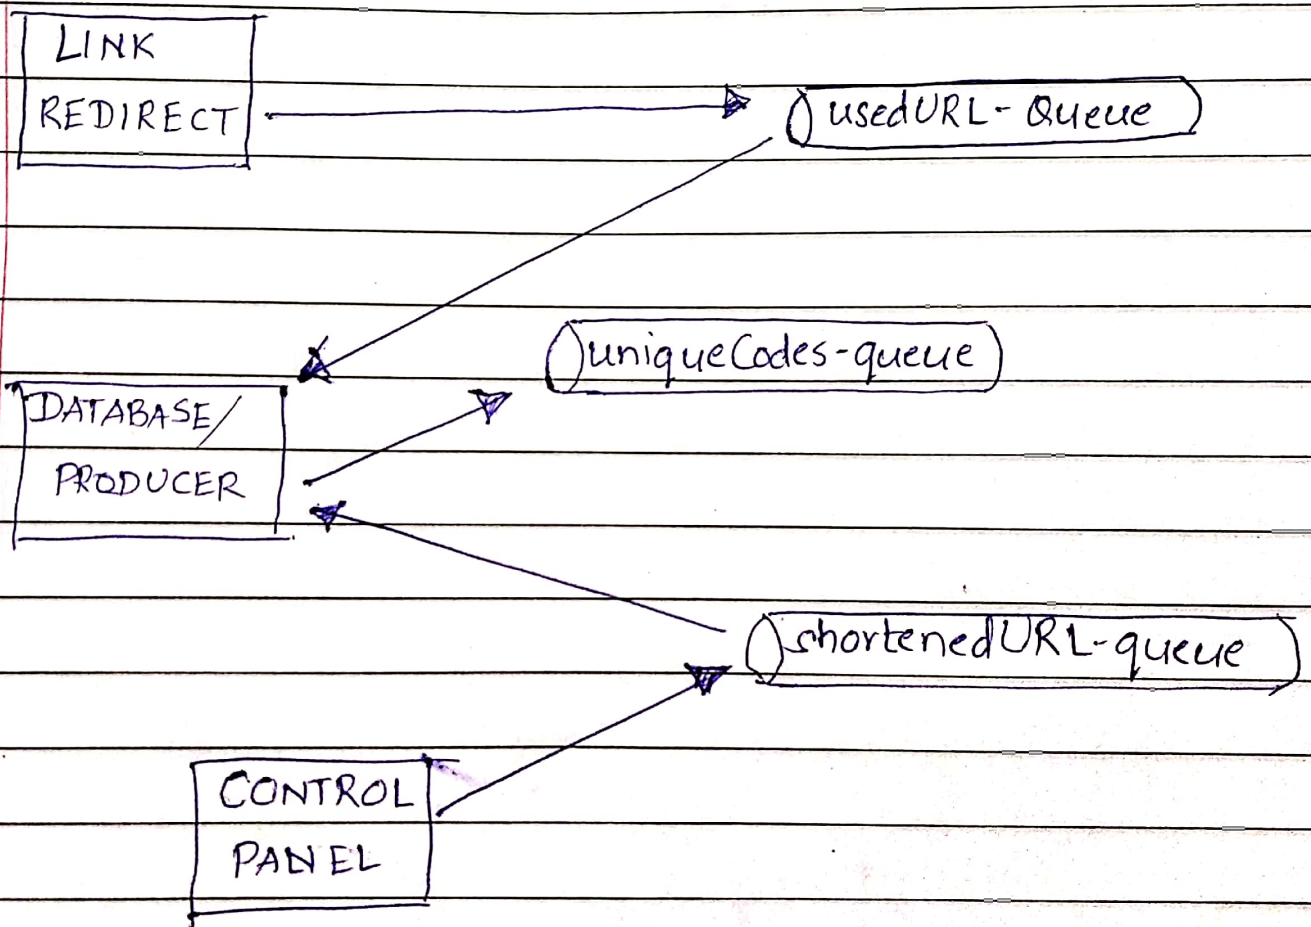 LINK
REDIRECT
usedURL-Queue
uniqueCodes-queue
DATABASE/
PRODUCER
shortenedURL-queue
CONTROL
PANEL